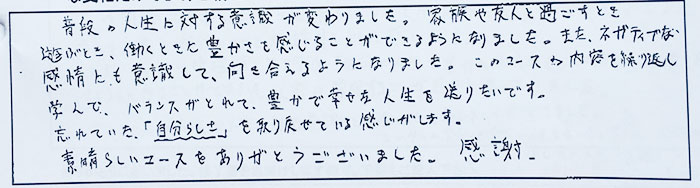 普段の人生に対する意識が変わりました。家族や友人と過ごすとき
遊ぶとき、働くときに豊かさを感じることができるようになりました。また、ネガティブな
感情にも意識して、向き合えるようになりました。このコースの内容を繰り返し
学んで、バランスがとれて、豊かで幸せな人生を送りたいです。
忘れていた、「自分らしさ」を取り戻せている感じがします。
素晴らしいコースをありがとうございました。 感謝。